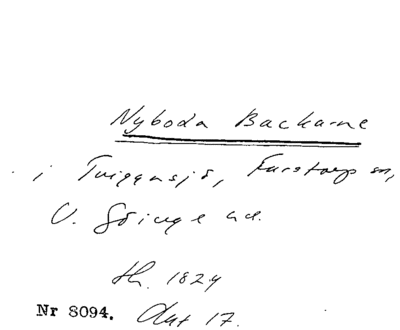 Nyboda Backarne
i Tviggasjö, Farstorps sn,
V. Göinge hd.
th. 1824
Nr 8094. Akt 17.